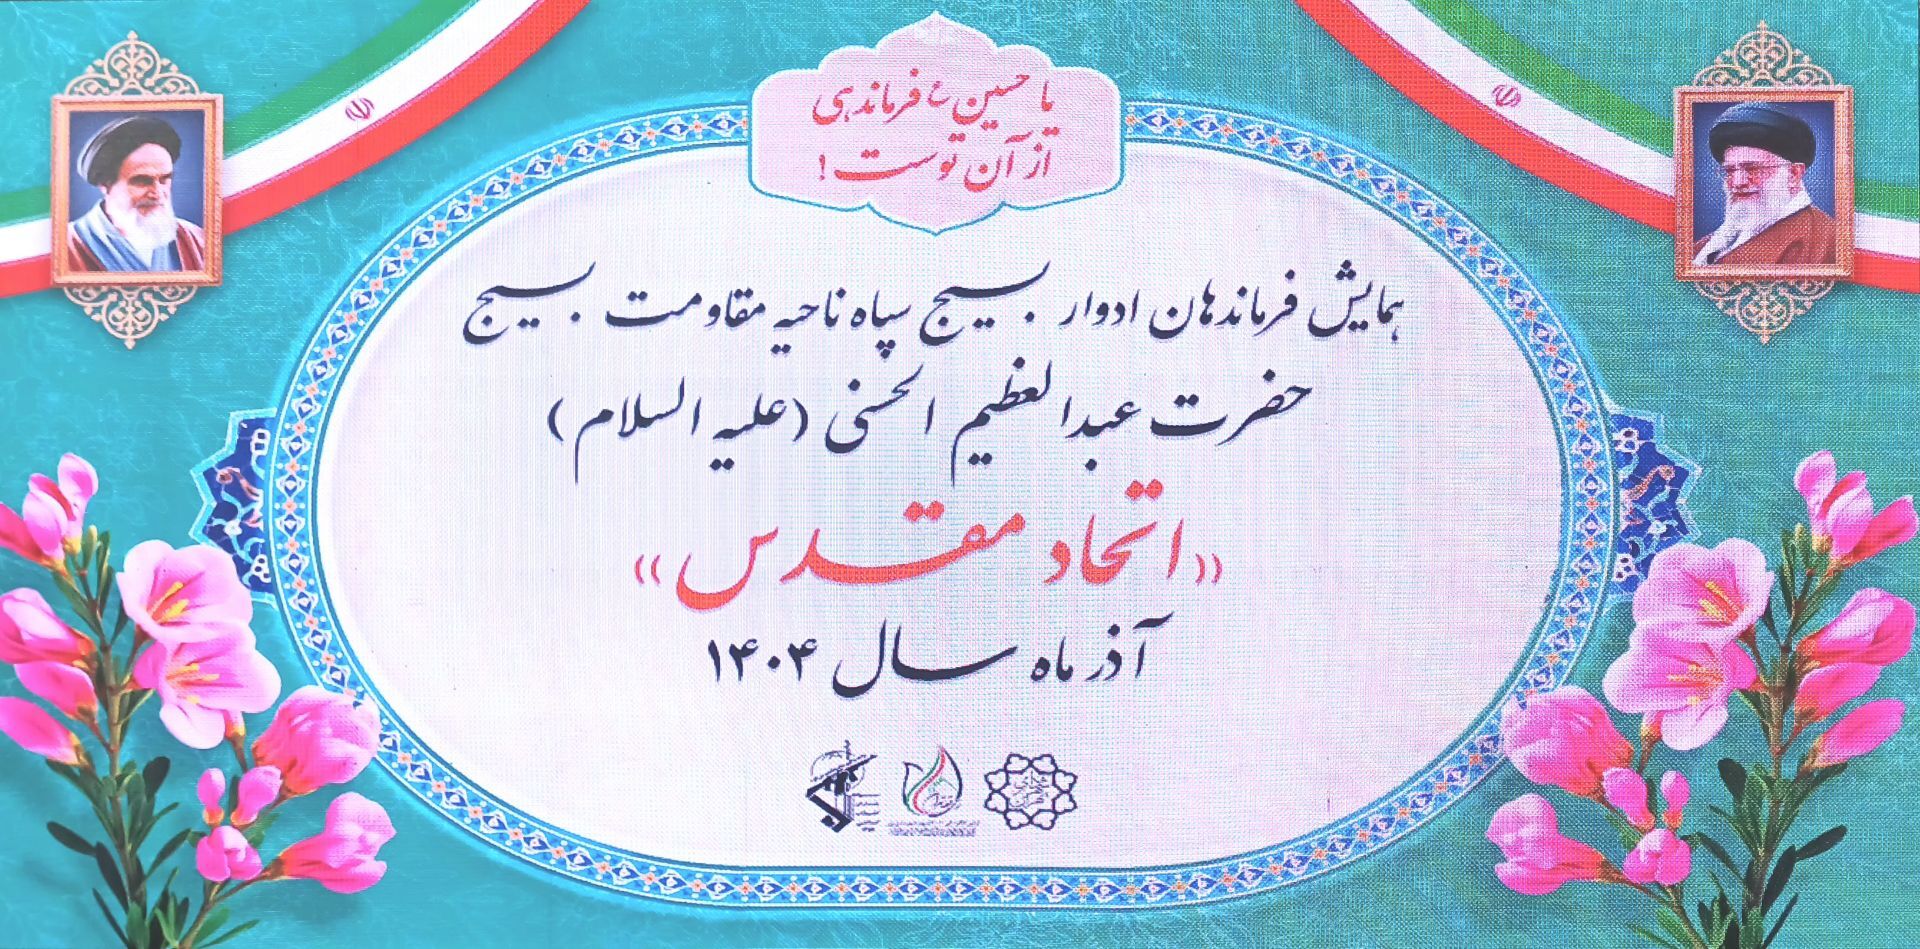 یا حسین ع فرماندهی
از آن توست!
همایش فرماندهان ادوار بسیج سپاه ناحیه مقاومت بسیج
حضرت عبدالعظیم الحسنی (علیه السلام)
«اتحاد مقدس»
آذر ماه سال ۱۴۰۴